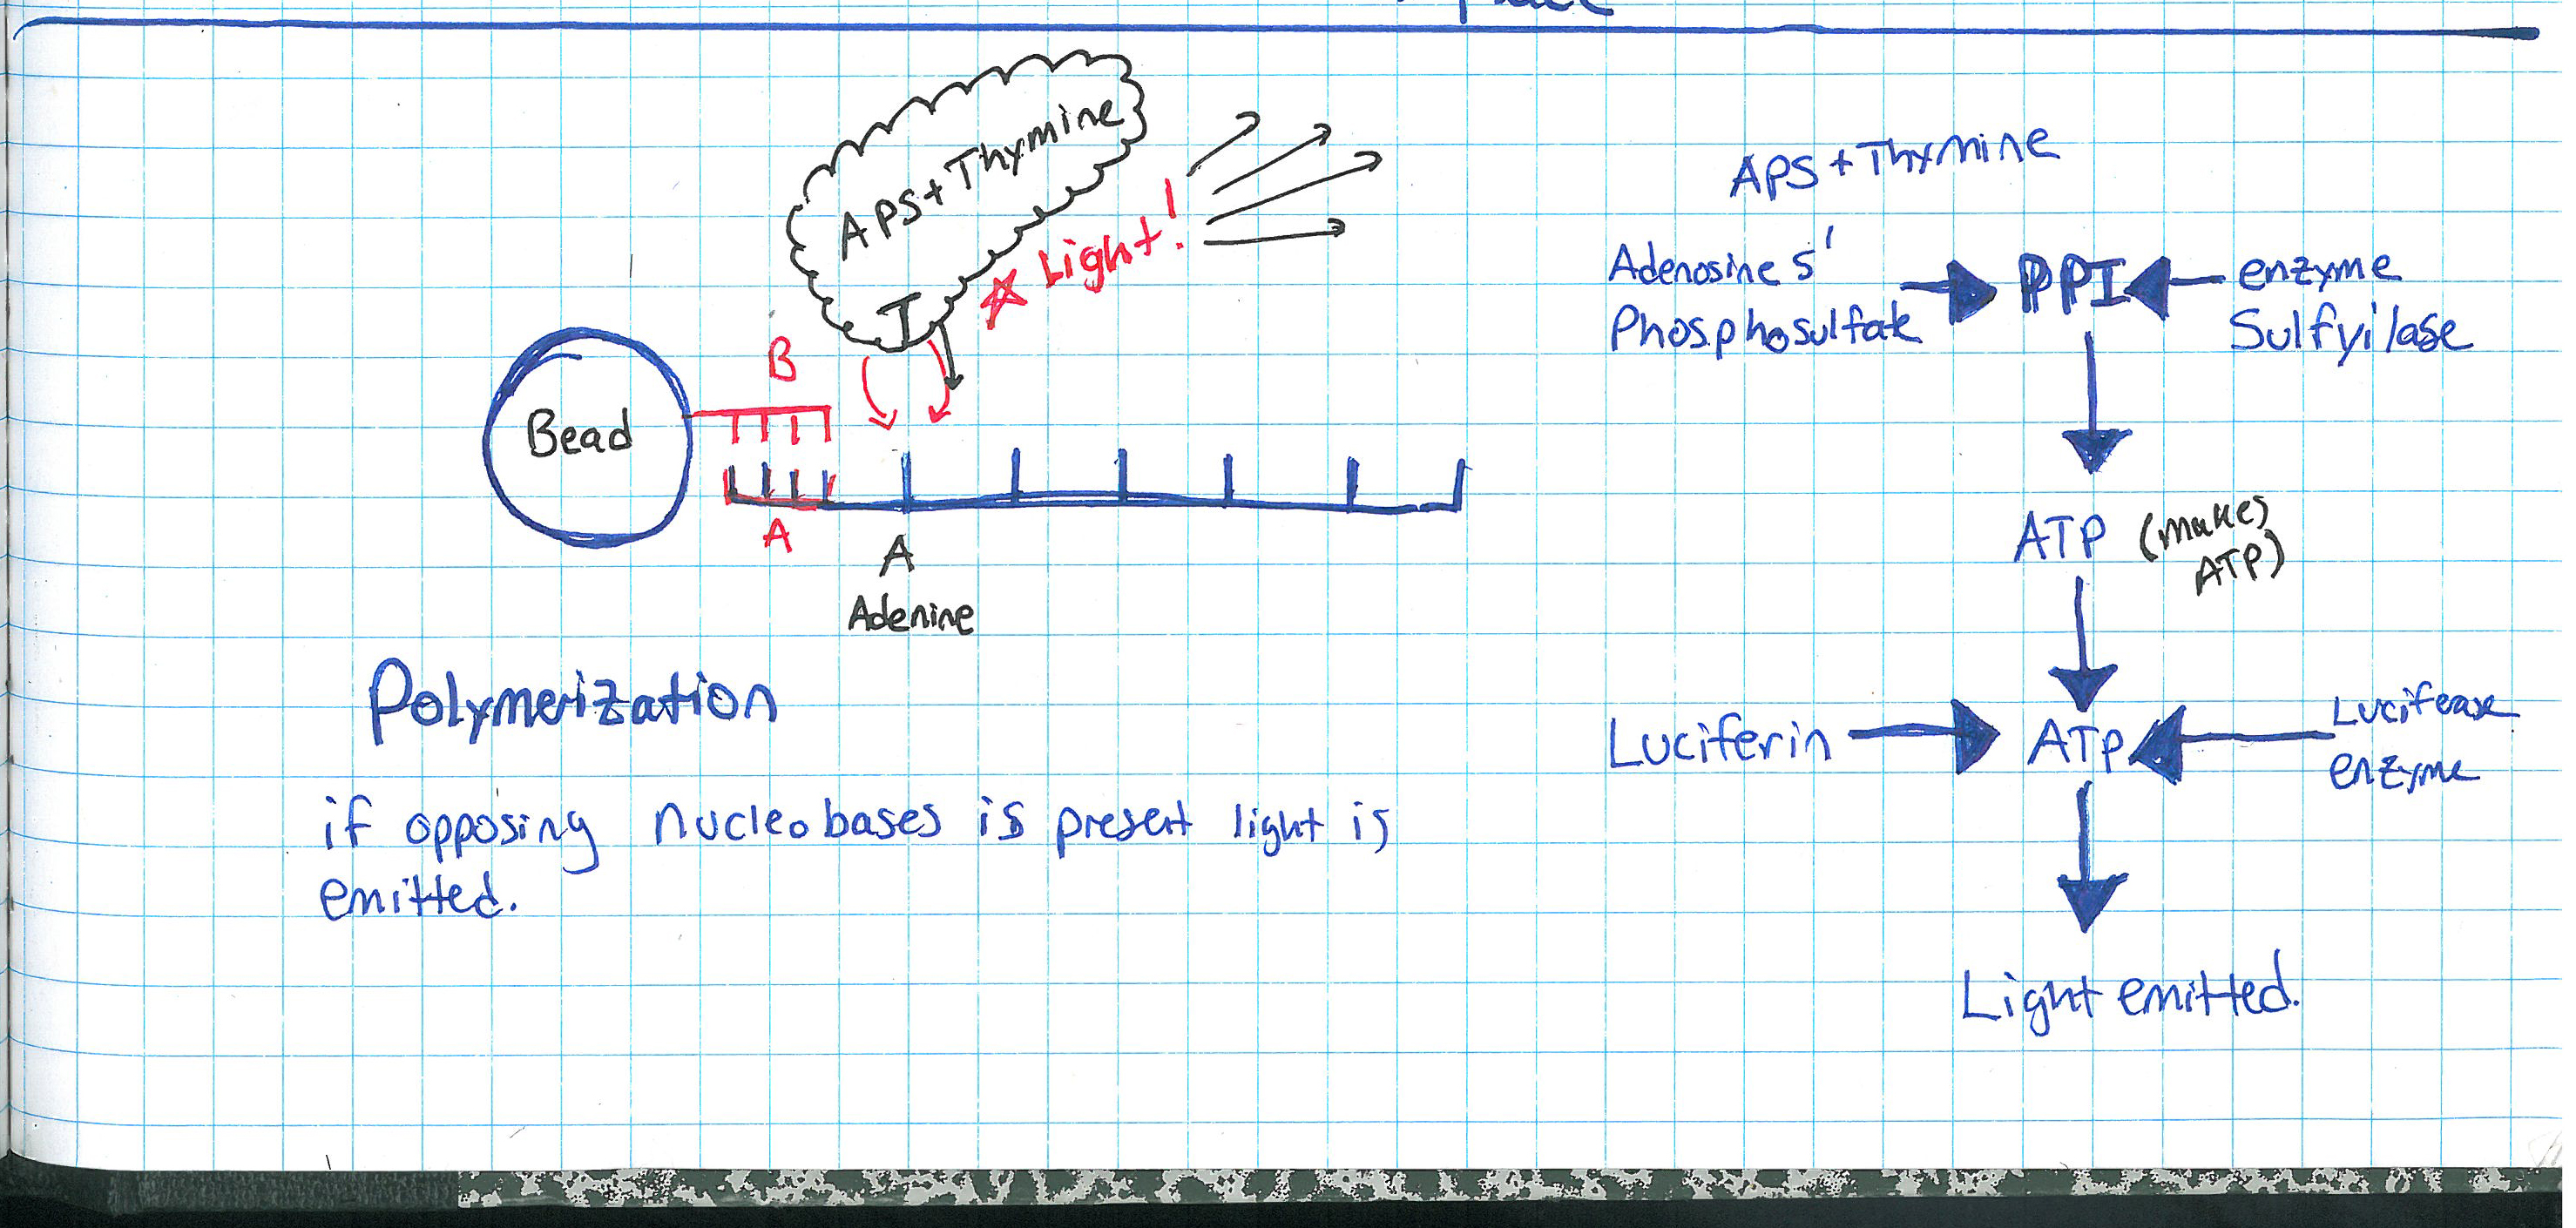 APS+Thymine
T
Light!
B
Bead
A
A
Adenine
Polymerization
if opposing nucleobases is present light is
emitted.
APS+Thymine
Adenosine 5'
Phosphosulfate
PPI
enzyme
Sulfyilase
ATP (makes
ATP)
Luciferin
ATP
Luciferase
enzyme
Light emitted.